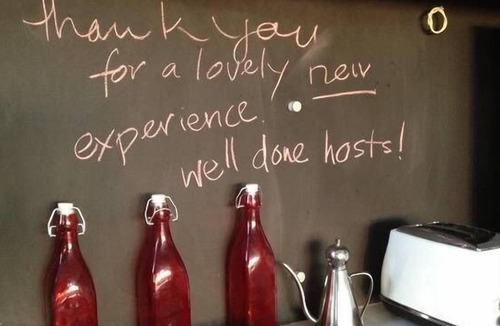 thank you
for a lovely new
experience.
well done hosts!